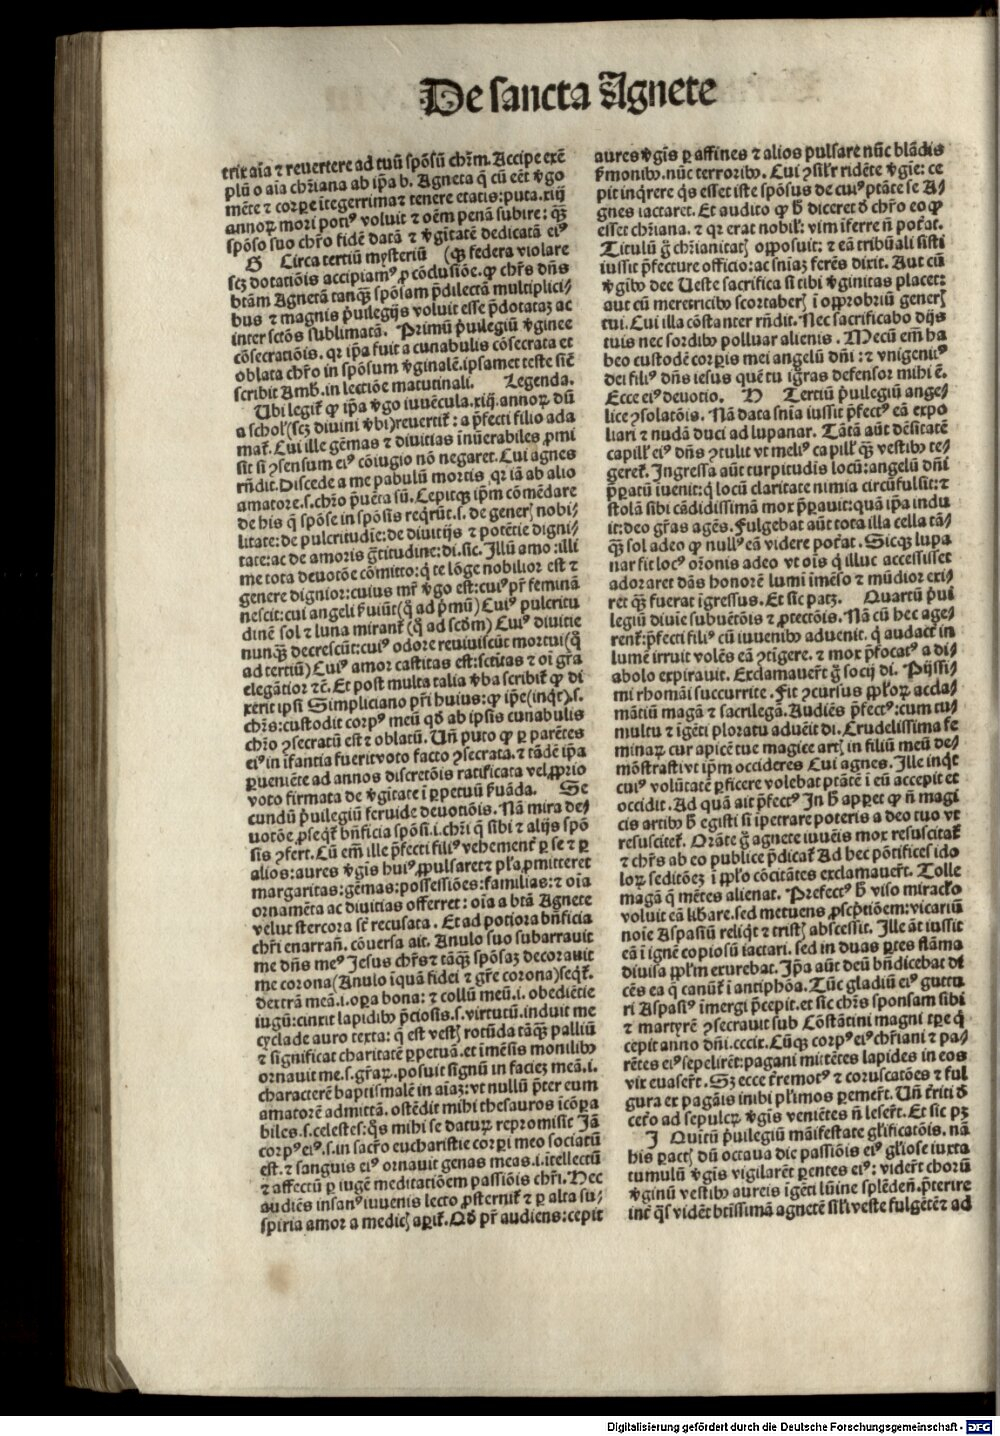 De sancta Agnete
trix aīa ⁊ reuertere ad tuū spōsū chr̄m. Accipe exē
plū o aīa chr̄iana ab ip̄a b. Agneta q̄ cū eēt v̄go
mēte ⁊ corpe ītegerrima ⁊ tenere etatis: puta .xiij
annoꝝ mori potiꝰ voluit ⁊ oēm penā subire: qꝫ̄
spōso suo chr̄o fidē datā ⁊ v̄gītatē dedicatā eiꝰ
G Circa tertiū mysteriū (qꝫ̄ federa violare
scꝫ dotatiōis accipiamꝰ ꝓ cōclusiōe. ꝙ chr̄s dn̄s
btām Agnetā tanqꝫ̄ spōsam p̄dilectā multiplici⸗
bus ⁊ magnis p̄uilegijs voluit esse p̄dotataꝫ ac
inter sctōs sublimatā. Primū p̄uilegiū v̄ginee
cōsecratiōis. qꝛ ip̄a fuit a cunabulis cōsecrata et
oblata chr̄o in spōsum v̄ginalē. ipsamet teste sic̄
scribit Amb. in lectiōe matutinali. Legenda.
Ubi legit̄ ꝙ ip̄a v̄go iuuēcula .xiij. annoꝝ dū
a scholꝭ (scꝫ diuini v̄bi) reuertit̄: a p̄fecti filio ada
mat̄. Cui ille gēmas ⁊ diuitias īnūerabiles ꝓmi
sit si ꝯsensum eiꝰ cōiugio nō negaret. Cui agnes
rn̄dit. Discede a me pabulū mortis qꝛ iā ab alio
amatore .s. chr̄o p̄uēta sū. Cepitqꝫ ip̄m cōmēdare
de his q̄ spōse in spōsis reqrūt .s. de generꝭ nobi⸗
litate: de pulcritudīe: de diuitijs ⁊ potētie digni⸗
tate: ac de amoris ḡtitudine: di. sic. Illū amo: illi
me tota deuotōe cōmitto: q̇ te lōge nobilior est ⁊
genere dignior: cuius mr̄ v̄go est: cuiꝰ pr̄ feminā
nescit: cui angeli p̄uiūt (q̄ ad p̄mū) Cuiꝰ pulcritu
dinē sol ⁊ luna mirant̄ (q̄ ad scd̄m) Cuiꝰ diuitie
nunqꝫ̄ decrescūt: cuiꝰ odore reuiuiscūt mortui (q̄
ad tertiū) Cuiꝰ amor castitas est: sctītas ⁊ oī gr̄a
elegātior ⁊c̄. Et post multa talia v̄ba scribit̄ ꝙ di
xerit ipsi Simpliciano pr̄i huius: ꝙ ip̄e (inq̇t) .s.
chr̄s: custodit corpꝰ meū qd̄ ab ipsis cunabulis
chr̄o ꝯsecratū est ⁊ oblatū. Un̄ puto ꝙ ꝑ parētes
eiꝰ in īfantia fuerit voto facto ꝯsecrata. ⁊ tādē ip̄a
ꝑueniēte ad annos discretōis ratificata vel ꝓprio
voto firmata de v̄gitate ī ꝑpetuū p̄uāda. Se
cundū p̄uilegiū feruide deuotiōis. Nā mira de⸗
uotōe ꝓseqt̄ bn̄ficia spōsi .i. chr̄i q̄ sibi ⁊ alijs spō
sis ꝯfert. Cū em̄ ille p̄fecti filiꝰ vehement̄ ꝑ se ⁊ ꝑ
alios: aures v̄gīs huiꝰ ꝓpulsaret ⁊ pl̄a ꝓmitteret
margaritas: gēmas: possessiōes: familias: ⁊ oīa
ornamēta ac diuitias offerret: oīa a btā Agnete
velut stercora sūt recusata. Et ad potiora bn̄ficia
chr̄i enarran̄. cōuersa ait. Anulo suo subarrauit
me dn̄s meꝰ Jesus chr̄s ⁊ tāqꝫ̄ spōsaꝫ decorauit
me corona (Anulo īquā fidei ⁊ gr̄e corona) seqt̄.
dextrā meā .i. oꝑa bona: ⁊ collū meū .i. obediētie
iugū: cinxit lapidibꝰ p̄ciosis .s. virtutū. induit me
cyclade auro texta: q̄ est vestꝭ rotūda tāqꝫ̄ palliū
⁊ significat charitatē ꝑpetuā. et īmēsis monilibꝰ
ornauit me .s. gr̄aꝝ. posuit signū in facieꝫ meā .i.
characterē baptismalē in aīaꝫ: vt nullū p̄ter eum
amatorē admittā. ostēdit mihi thesauros īcōpa
biles .s. celestes: q̄s mihi se daturꝝ repromisit Jā
corpꝰ eiꝰ .s. in sacr̄o eucharistie corpi meo sociatū
est. ⁊ sanguis eiꝰ ornauit genas meas .i. ītellectū
⁊ affectū ꝑ iugē meditatiōem passiōis chr̄i. Hec
audiēs insanꝰ iuuenis lecto ꝓsternit̄ ⁊ ꝑ alta su⸗
spiria amor a medicꝭ aꝑit̄. Qd̄ pr̄ audiens: cepit
aures v̄gīs ꝑ affines ⁊ alios pulsare nūc blādis
s̄monibꝰ. nūc terroribꝰ. Cui ꝯsil̄r ridēte v̄gīe: ce
pit inq̇rere q̇s esset iste spōsus de cuiꝰ ptāte se A⸗
gnes iactaret. Et audito ꝙ h̄ diceret d̄ chr̄o eo ꝙ
esset chr̄iana. ⁊ qꝛ erat nobilꝭ: vim īferre n̄ pot̄at.
Titulū ḡ chr̄ianitatꝭ opposuit: ⁊ eā tribūali sisti
iussit p̄fecture officio: ac sn̄iaꝫ ferēs dixit. Aut cū
v̄gibꝰ dee Ueste sacrifica si tibi v̄ginitas placet:
aut cū meretricibꝰ scortaberꝭ ī opprobriū generꝭ
tui. Cui illa cōstanter rn̄dit. Nec sacrificabo dijs
tuis nec sordibꝰ polluar alienis. Mecū em̄ ha
beo custodē corpis mei angelū dn̄i: ⁊ vnigenitꝰ
dei filiꝰ dn̄s iesus quē tu ign̄ras defensor mihi ē.
Ecce eiꝰ deuotio. H Tertiū p̄uilegiū ange⸗
lice ꝯsolatōis. Nā data sn̄ia iussit p̄fectꝰ eā expo
liari ⁊ nudā duci ad lupanar. Tātā aūt dēsitatē
capillꝭ eiꝰ dn̄s ꝯtulit vt meliꝰ capillꝭ qꝫ̄ vestibꝰ te⸗
geret̄. Ingressa aūt turpitudis locū: angelū dn̄i
p̄paratū īuenit: q̇ locū claritate nimia circūfulsit: ⁊
stolā sibi cādidissimā mox p̄parauit: quā ip̄a indu
it: deo gr̄as agēs. Fulgebat aūt tota illa cella tā⸗
qꝫ̄ sol adeo ꝙ nullꝰ eā videre pot̄at. Sicqꝫ lupa
nar fit locꝰ or̄onis adeo vt oīs q̇ illuc accessisset
adoraret dās honorē lumi īmēso ⁊ mūdior exi⸗
ret qꝫ̄ fuerat īgressus. Et sic patꝫ. Quartū p̄ui
legiū diuie subuētōis ⁊ ꝓtectōis. Nā cū hec age⸗
rent̄: p̄fecti filiꝰ cū iuuenibꝰ aduenit. q̇ audacter in
lumē irruit volēs eā ꝯtīgere. ⁊ mox p̄focatꝰ a di⸗
abolo expirauit. Exclamauert̄ ḡ socij di. Pijssi⸗
mi rhomāi succurrite. Fit ꝯcursus ppl̄oꝝ accla⸗
mātiū magā ⁊ sacrilegā. Audiēs p̄fectꝰ: cum tu⸗
multu ⁊ īgēti ploratu aduēit di. Crudelissima fe
minaꝝ cur apicē tue magice artꝭ in filiū meū de⸗
mōstrasti vt ip̄m occideres Cui agnes. Ille inq̇t
cuiꝰ volūtatē ꝑficere volebat ptātē ī eū accepit et
occidit. Ad quā ait p̄fectꝰ In h̄ apꝑet ꝙ n̄ magi
cis artibꝰ h̄ egisti si īpetrare poteris a deo tuo vt
resuscitet̄. Orāte ḡ agnete iuuēis mox resuscitat̄
⁊ chr̄s ab eo publice p̄dicat̄ Ad hec pōtifices ido
loꝝ seditōeꝫ ī ppl̄o cōcitātes exclamauert̄. Tolle
magā q̄ mētes alienat. Prefectꝰ h̄ viso mirac̄lo
voluit eā libare. sed metuens ꝓscptiōem: vicariū
noīe Aspasiū reliq̇t ⁊ tristꝭ abscessit. Ille āt iussit
eā ī ignē copiosū iactari. sed in duas ꝑtes flāma
diuisa ppl̄m exurebat. Ip̄a aūt deū bn̄dicebat di
cēs ea q̄ canūt̄ ī antiphōa. Tūc gladiū eiꝰ guttu
ri Aspasiꝰ īmergi p̄cepit. et sic chr̄s sponsam sibi
⁊ martyrē ꝯsecrauit sub Cōstātini magni tꝑe q̄
cepit anno dn̄i .cccix. Cūqꝫ corpꝰ eiꝰ chr̄iani ⁊ pa⸗
rētes eiꝰ sepelirēt: pagani mittētes lapides in eos
vix euasert̄. Sꝫ ecce t̄remotꝰ ⁊ coruscatōes ⁊ ful
gura ex pagāis inibi pl̄imos ꝑemert̄. Un̄ t̄riti d̄
cet̄o ad sepulcꝝ v̄gīs veniētes n̄ lesert̄. Et sic pꝫ
I Quītū p̄uilegiū māifestate gl̄ificatōis. nā
his ꝑactꝭ dū octaua die passiōis eiꝰ gl̄iose iuxta
tumulū v̄gīs vigilarēt ꝑentes eiꝰ: videt̄ chorū
v̄ginū vestibꝰ aureis īgēti lūine splēden̄. p̄terire
int̄ q̄s vidēt btīssimā agnetē sil̄i veste fulgētē ⁊ ad
Digitalisierung gefördert durch die Deutsche Forschungsgemeinschaft - DFG